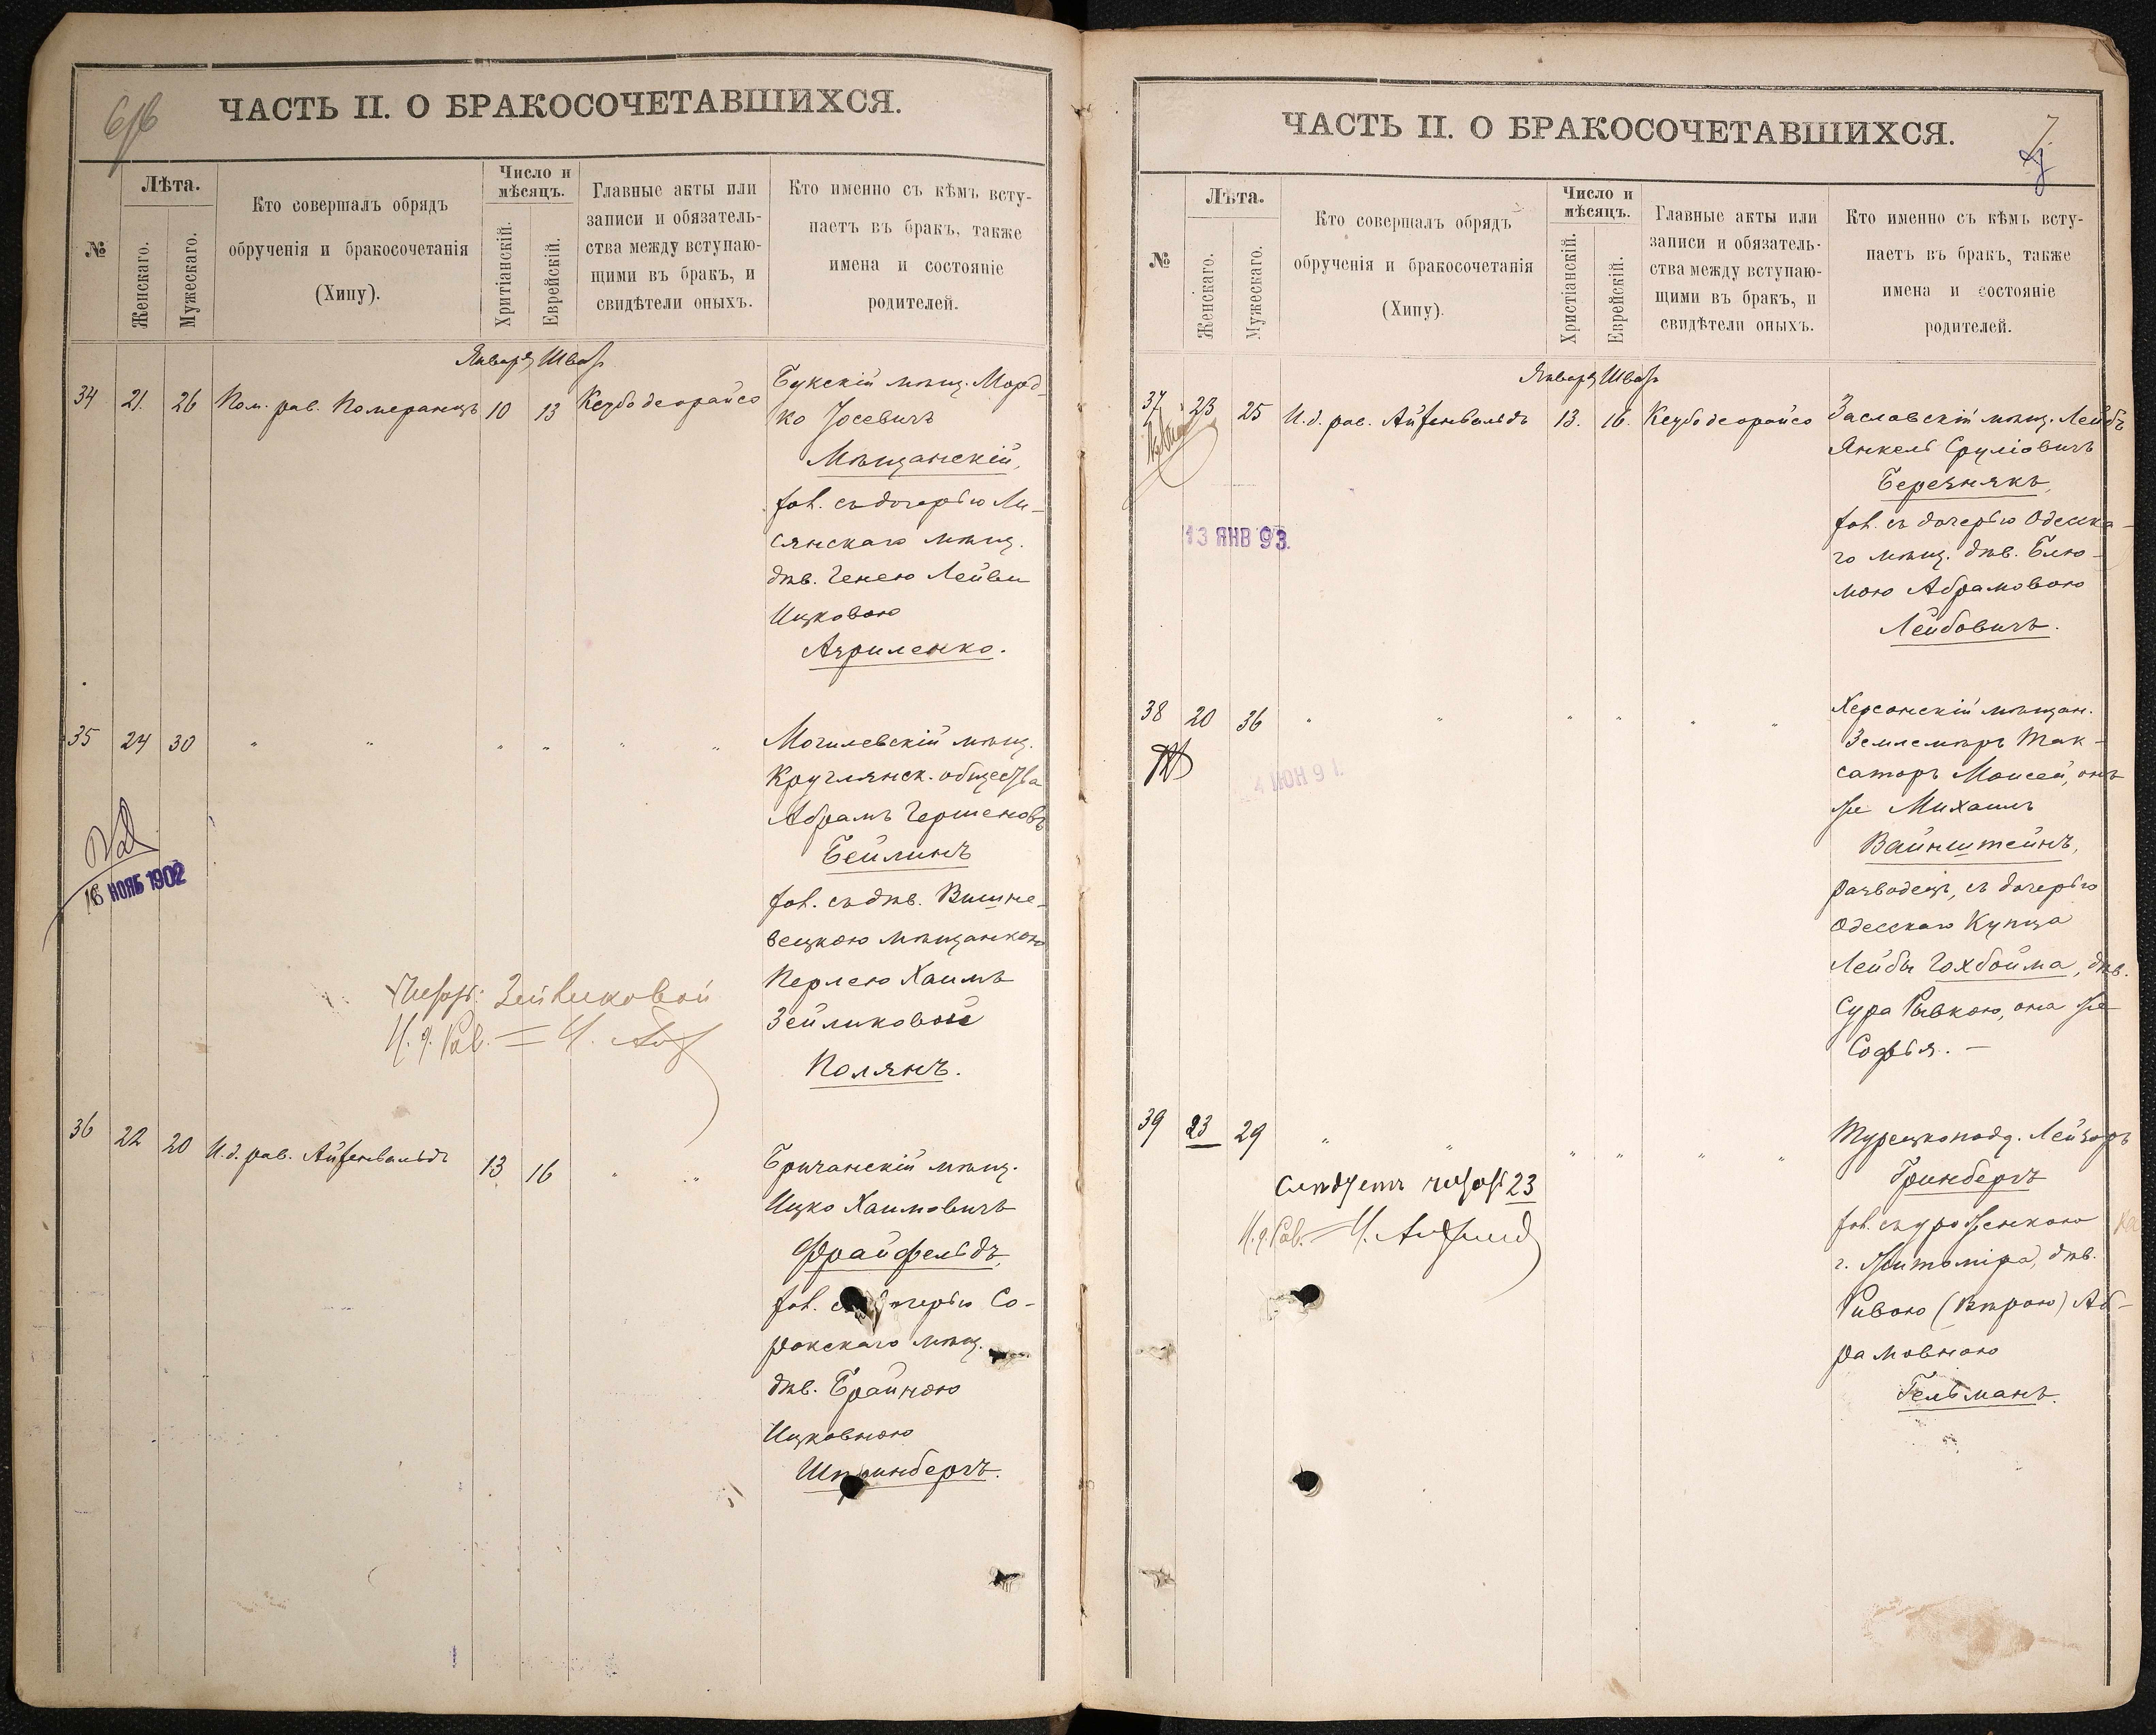 ЧАСТЬ II. О БРАКОСОЧЕТАВШИХСЯ.
№
Лѣта.
Женскаго.
Мужескаго.
Кто совершалъ обрядъ
обрученія и бракосочетанія
(Хипу).
Число и
мѣсяцъ.
Хритіанскій.
Еврейскій.
Главные акты или
записи и обязатель-
ства между вступаю-
щими въ бракъ, и
свидѣтели оныхъ.
Кто именно съ кѣмъ всту-
паетъ въ бракъ, также
имена и состояніе
родителей.
Января Шват
34 21. 26 Пом. рав. Померанцъ 10 13 Кеубо деорайсо
Букскій мѣщ. Морд-
ко Іосевичъ
Мѣщанскій,
хол. съ дочерью Ли-
сянскаго мѣщ.
дѣв. Генею Лейви
Ицковою
Азриленко.
35 24 30 " " " " " "
Могилевскій мѣщ.
Круглянск. общества
Абрамъ Гершеновъ
Бейлинъ
хол. съ дѣв. Вишне-
вецкою мѣщанкою
Перлею Хаимъ
Зейликовой
Полянъ.
16 НОЯБ 1902
Читать: Зейликовой
И. д. Рав.
36 22 20 И. д. рав. Айзенвальдъ 13 16 " "
Бричанскій мѣщ.
Ицко Хаимовичъ
Фрайфельдъ,
хол. съ дочерью Со-
рокскаго мѣщ.
дѣв. Брайною
Ицковною
Шпринбергъ.
ЧАСТЬ II. О БРАКОСОЧЕТАВШИХСЯ.
7
№
Лѣта.
Женскаго.
Мужескаго.
Кто совершалъ обрядъ
обрученія и бракосочетанія
(Хипу).
Число и
мѣсяцъ.
Христіанскій.
Еврейскій.
Главные акты или
записи и обязатель-
ства между вступаю-
щими въ бракъ, и
свидѣтели оныхъ.
Кто именно съ кѣмъ всту-
паетъ въ бракъ, также
имена и состояніе
родителей.
Января Шват
37 23 25 И. д. рав. Айзенвальдъ 13. 16. Кеубо деорайсо
Заславскій мѣщ. Лейбъ
Янкель Сруліовичъ
Березнякъ,
хол. съ дочерью Одесска-
го мѣщ. дѣв. Блю-
мою Абрамовою
Лейбовичъ.
13 ЯНВ 93.
38 20 36 " " " " " "
Херсонскій мѣщан.
Землемѣръ Так-
саторъ Моисей, онъ
же Михаилъ
Вайнштейнъ,
разводецъ, съ дочерью
Одесскаго Купца
Лейбы Гохбойма, дѣв.
Сура Ривкою, она же
Софья. —
4 ИЮН 91.
39 23 29 " " " " " "
Турецкопод. Лейзоръ
Гринбергъ
хол. съ уроженкою
г. Житоміра, дѣв.
Ривою (Вѣрою) Аб-
рамовною
Гельманъ.
Слѣдуетъ читать 23
И. д. Рав.